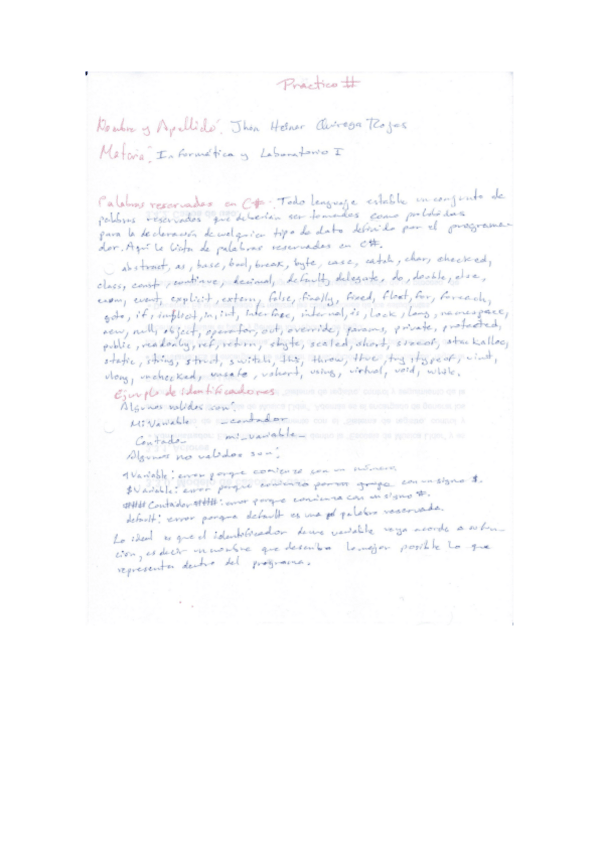 Practico #
Nombre y Apellido: Jhon Heiner Quiroga Rojas
Materia: Informática y Laboratorio I
Palabras reservadas en C#. Todo lenguaje estable un conjunto de
palabras reservadas que deberían ser tomadas como prohibidas
para la declaración de cualquier tipo de dato definido por el programa-
dor. Aquí la lista de palabras reservadas en C#.
abstract, as, base, bool, break, byte, case, catch, char, checked,
class, const, continue, decimal, default, delegate, do, double, else,
enum, event, explicit, extern, false, finally, fixed, float, for, foreach,
goto, if, implicit, in, int, interface, internal, is, lock, long, namespace,
new, null, object, operator, out, override, params, private, protected,
public, readonly, ref, return, sbyte, sealed, short, sizeof, stackalloc,
static, string, struct, switch, this, throw, true, try, typeof, uint,
ulong, unchecked, unsafe, ushort, using, virtual, void, while.
Ejemplo de identificadores
Algunos validos son:
Mi Variable _contador
Contado_ mi_variable_
Algunos no validos son:
1Variable: error porque comienza con un número
$Variable: error porque comienza por un con un signo $.
Contador ####: error porque comienza con un signo #.
default: error porque default es una palabra reservada.
Lo ideal es que el identificador de una variable vaya acorde a su fun-
ción, es decir un nombre que describa lo mejor posible lo que
representa dentro del programa.